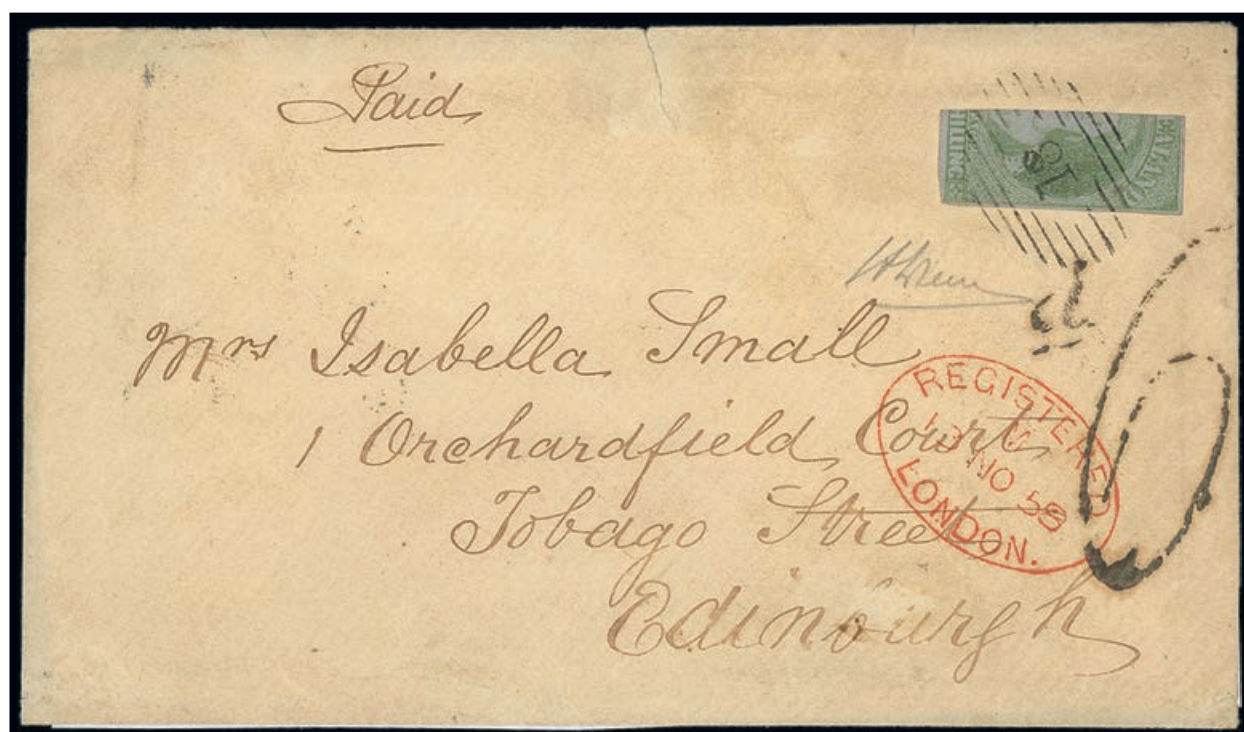 Paid
18
d
Mrs Isabella Small
1 Orchardfield Court
Tobago Street
Edinburgh
REGISTERED
NO 58
LONDON.